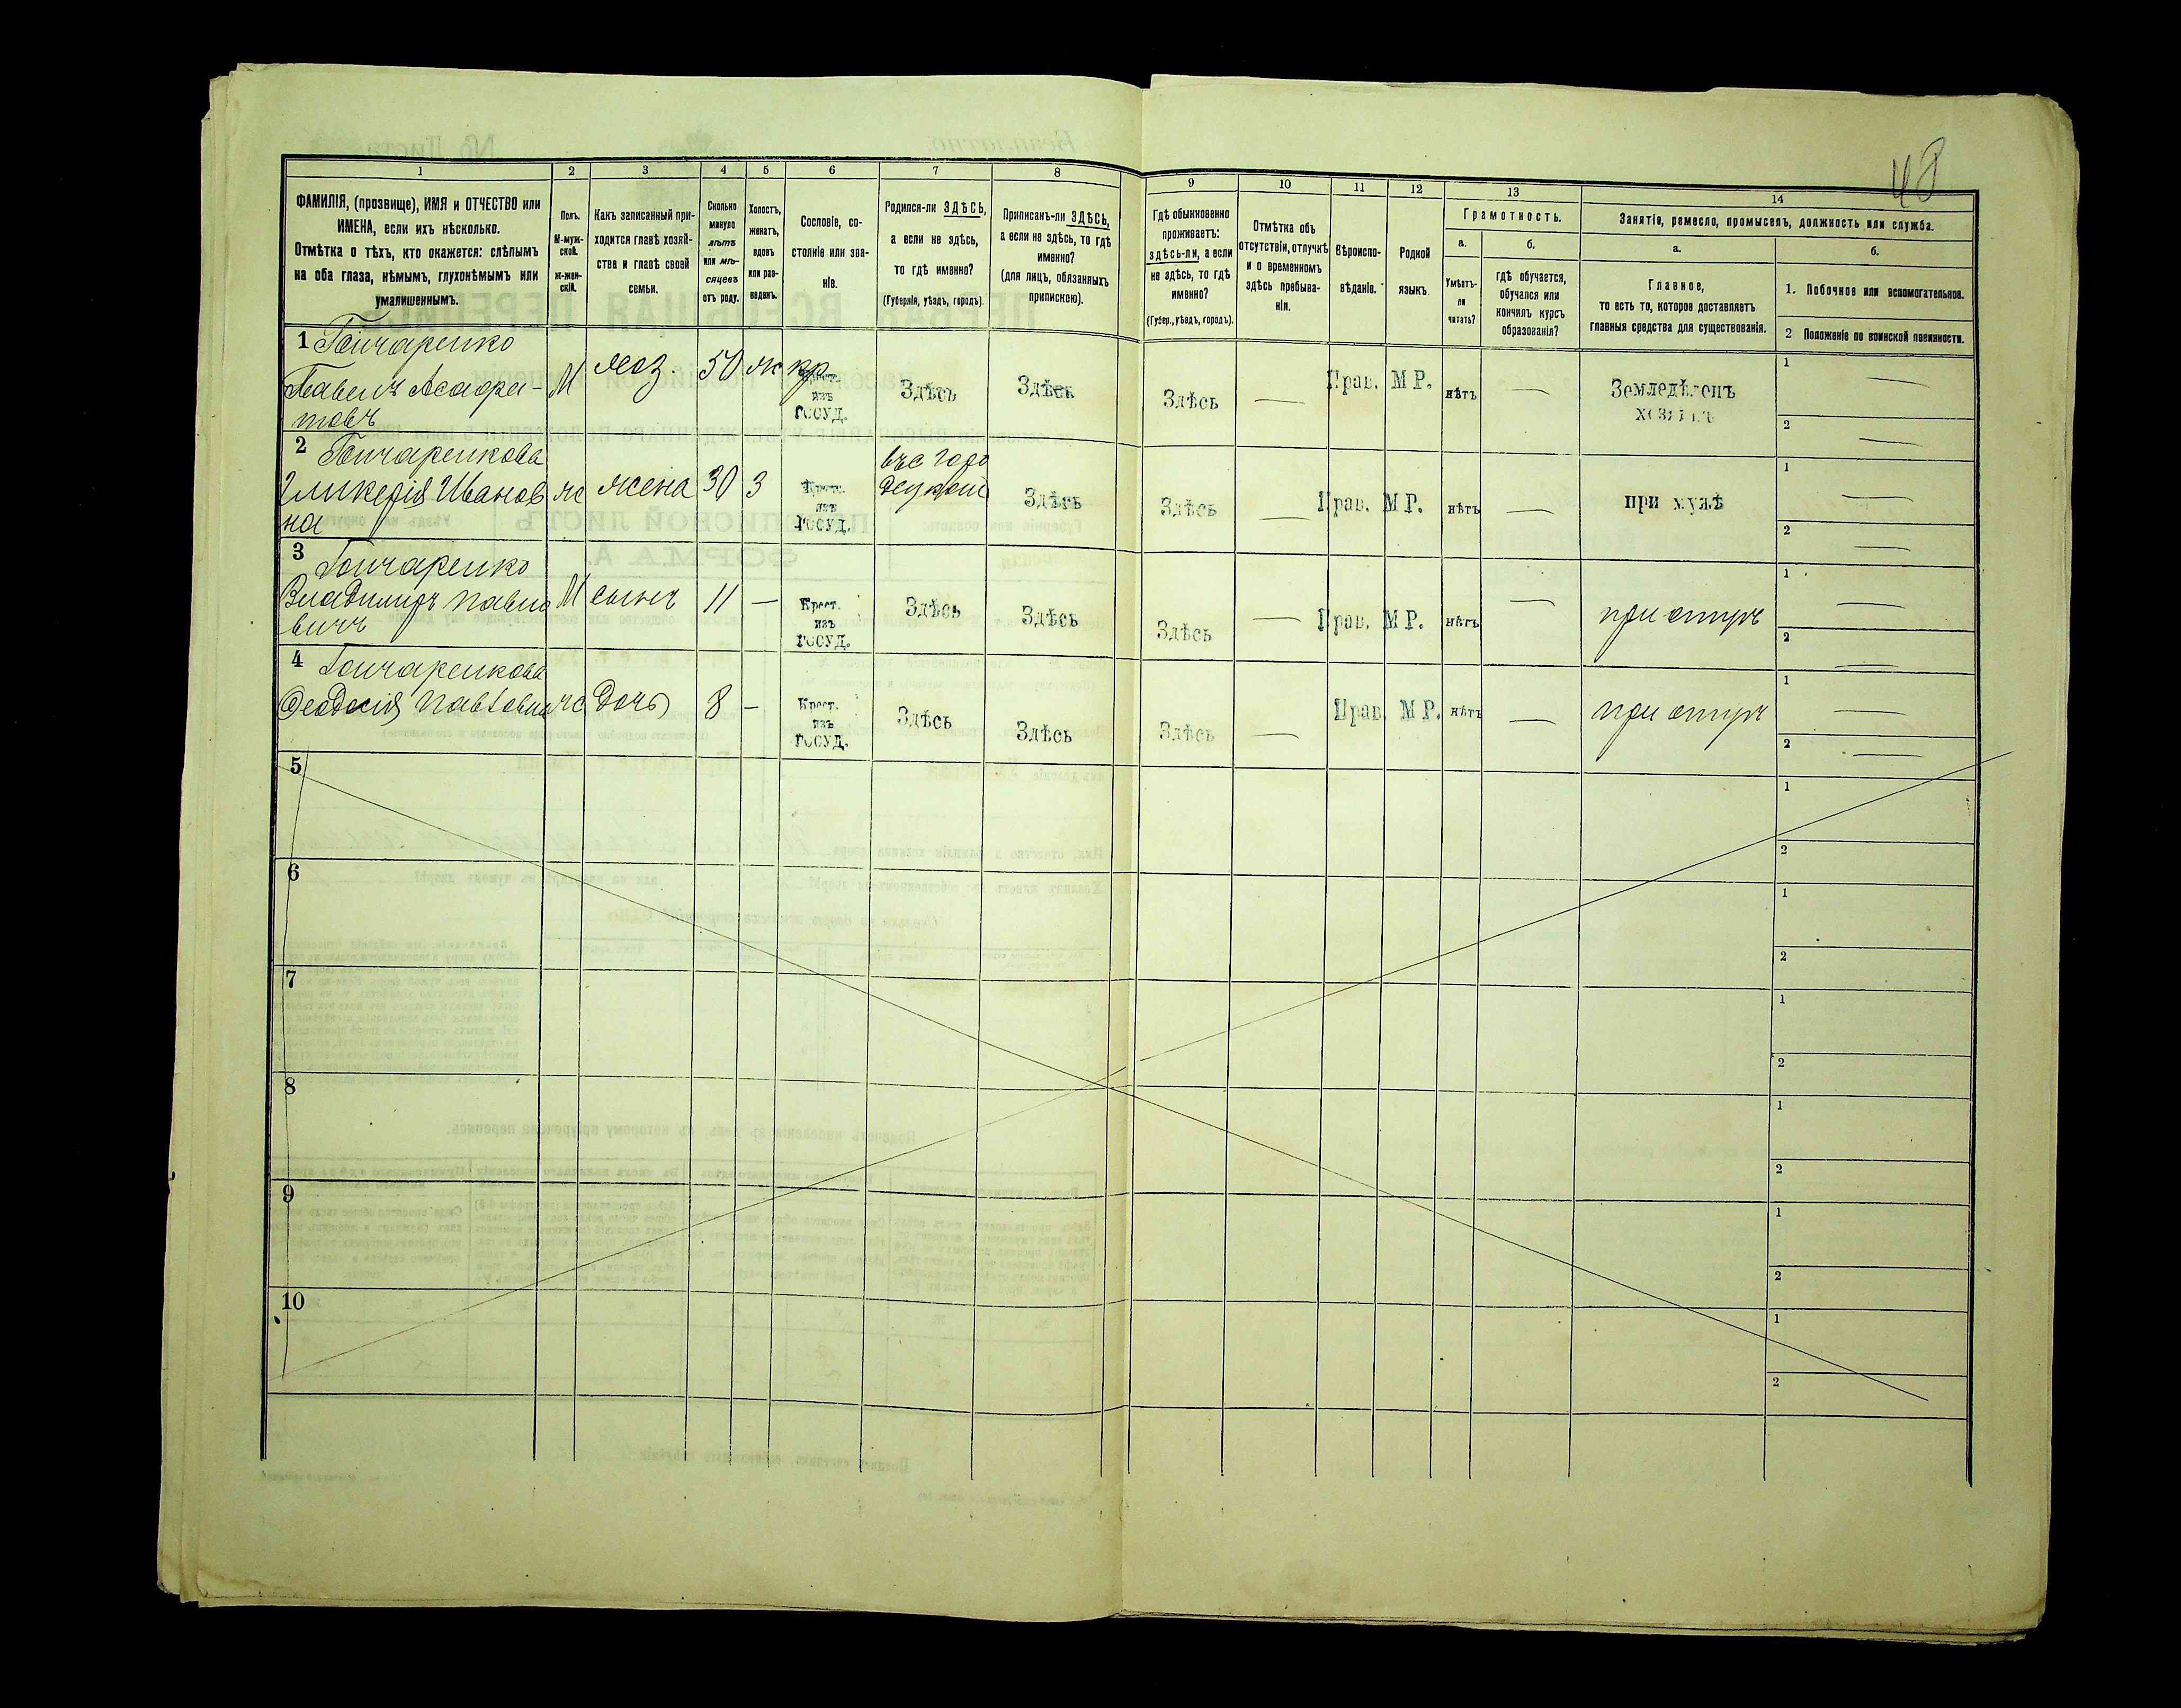 48
1 2 3 4 5 6 7 8 9 10 11 12 13 14
ФАМИЛІЯ, (прозвище), ИМЯ и ОТЧЕСТВО или
ИМЕНА, если ихъ нѣсколько.
Отмѣтка о тѣхъ, кто окажется: слѣпымъ
на оба глаза, нѣмымъ, глухонѣмымъ или
умалишеннымъ.
Полъ.
М-муж-
ской.
Ж-жен-
скій.
Какъ записанный при-
ходится главѣ хозяй-
ства и главѣ своей
семьи.
Сколько
минуло
лѣтъ
или мѣ-
сяцевъ
отъ роду.
Холостъ,
женатъ,
вдовъ
или раз-
веденъ.
Сословіе, со-
стояніе или зва-
ніе.
Родился-ли ЗДѢСЬ,
а если не здѣсь,
то гдѣ именно?
(Губернія, уѣздъ, городъ).
Приписанъ-ли ЗДѢСЬ,
а если не здѣсь, то гдѣ
именно?
(для лицъ, обязанныхъ
припискою).
Гдѣ обыкновенно
проживаетъ:
здѣсь-ли, а если
не здѣсь, то гдѣ
именно?
(Губер., уѣздъ, городъ).
Отмѣтка объ
отсутствіи, отлучкѣ
и о временномъ
здѣсь пребыва-
ніи.
Вѣроиспо-
вѣданіе.
Родной
языкъ.
Грамотность.
а.
Умѣетъ-
ли
читать?
б.
гдѣ обучается,
обучался или
кончилъ курсъ
образованія?
Занятіе, ремесло, промыселъ, должность или служба.
а.
Главное,
то есть то, которое доставляетъ
главныя средства для существованія.
б.
1. Побочное или вспомогательное.
2 Положеніе по воинской повинности.
1 Гончаренко
Павелъ
товъ
М
хоз.
50
ж
кр
Крест.
изъ
госуд.
Здѣсь
Здѣсь
Здѣсь
—
Прав.
М Р.
нѣтъ
—
Земледѣлецъ
хозяинъ
1 —
2 —
2 Гончаренкова
Гликерія Иванов
на
ж
жена
30
З
Крест.
изъ
госуд.
Здѣсь
Здѣсь
—
Прав.
М Р.
нѣтъ
—
при мужѣ
1 —
2 —
3 Гончаренко
Владимиръ Павло
вичъ
М
сынъ
11
—
Крест.
изъ
госуд.
Здѣсь
Здѣсь
Здѣсь
—
Прав.
М Р.
нѣтъ
—
при отцѣ
1 —
2 —
4 Гончаренкова
Феодосія Павловна
ж
дочь
8
—
Крест.
изъ
госуд.
Здѣсь
Здѣсь
Здѣсь
—
Прав.
М Р.
нѣтъ
—
при отцѣ
1 —
2 —
5
1
2
6
1
2
7
1
2
8
1
2
9
1
2
10
1
2